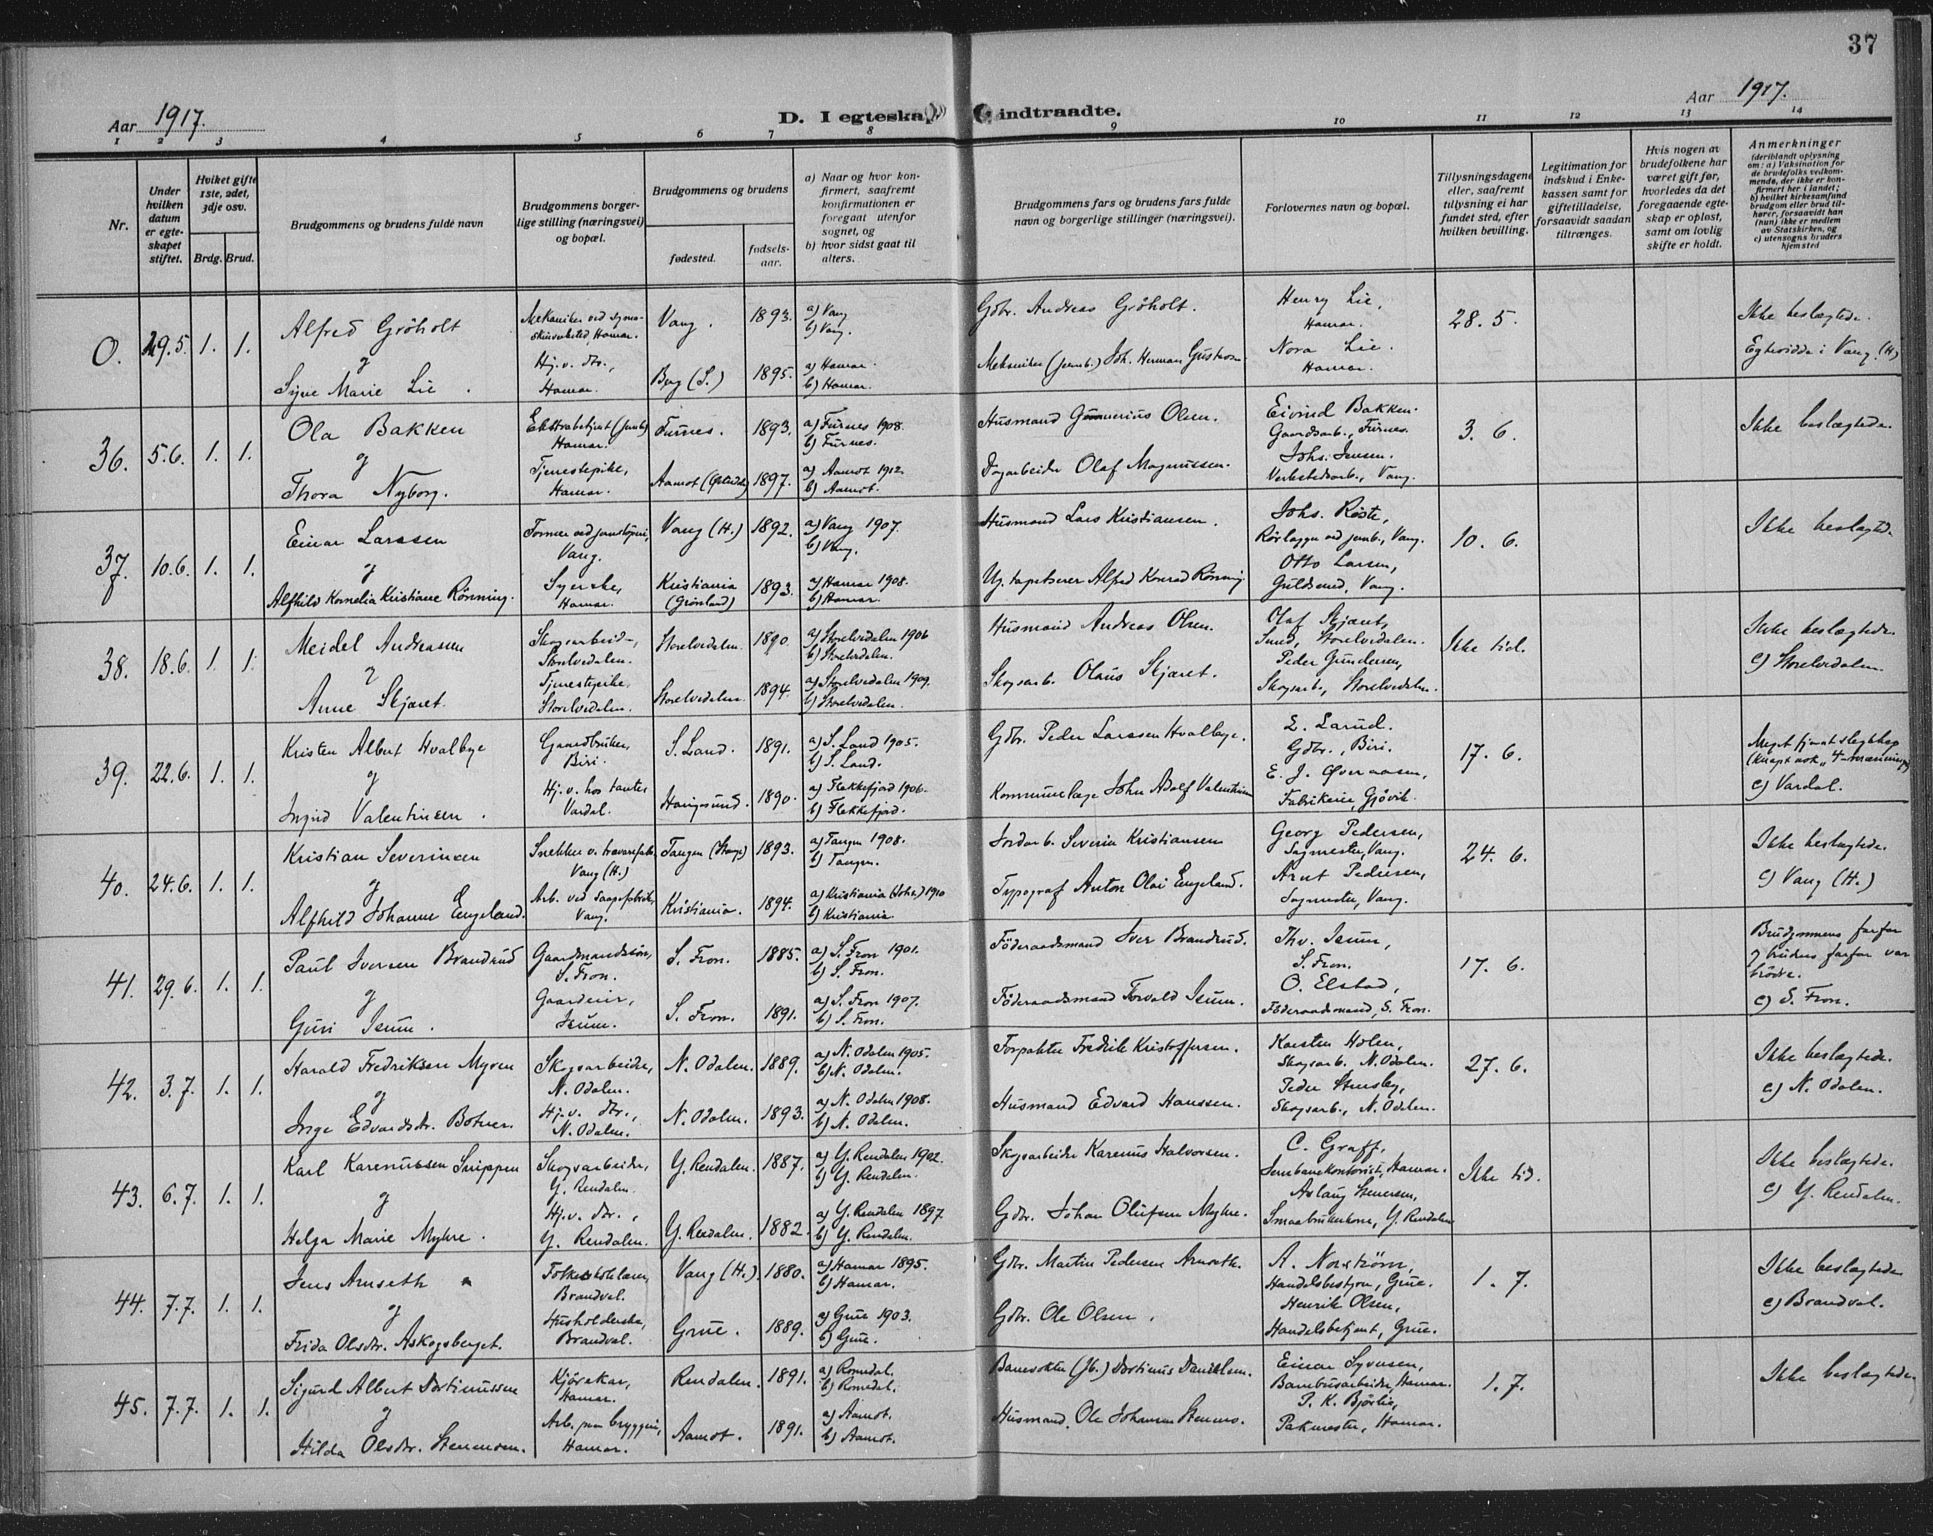 37
Aar 1917.
D. I egteskap indtraadte.
Aar 1917.
1 2 3 4 5 6 7 8 9 10 11 12 13 14
Nr.
Under hvilken datum er egteskapet stiftet.
Hviket gifte 1ste, 2det, 3dje osv.
Brdg. Brud.
Brudgommens og brudens fulde navn
Brudgommens borgerlige stilling (næringsvei) og bopæl.
Brudgommens og brudens
fødested.
fødselsaar.
a) Naar og hvor konfirmert, saafremt konfirmationen er foregaat utenfor sognet, og
b) hvor sidst gaat til alters.
Brudgommens fars og brudens fars fulde navn og borgerlige stillinger (næringsvei).
Forlovernes navn og bopæl.
Tillysningsdagene eller, saafremt tillysning ei har fundet sted, efter hvilken bevilling.
Legitimation for indskud i Enkekassen samt for giftetilladelse, forsaavidt saadan tiltrænges.
Hvis nogen av brudefolkene har været gift før, hvorledes da det foregaaende egteskap er opløst, samt om lovlig skifte er holdt.
Anmerkninger
(deriblandt oplysning om: a) Vaksination for de brudefolks vedkommende, der ikke er konfirmert her i landet; b) hvilket kirkesamfund brudgom eller brud tilhører, forsaavidt han (hun) ikke er medlem av Statskirken, og c) utensogns bruders hjemsted
0. 29.5. 1. 1.
Alfred Gröholt
og
Signe Marie Lie.
Hamar.
Hj. v. dtr., Hamar.
Vang. 1893. a) Vang b) Vang.
Berg (S.) 1895. a) Hamar. b) Hamar.
Gdbr. Andreas Gröholt.
Mekaniker (jernb.) Joh. Herman
Henry Lie, Hamar.
Nora Lie. Hamar.
28. 5.
Ikke beslægtede.
Egteviedde i Vang. (H)
36. 5.6. 1. 1.
Ola Bakken
og
Thora Nyborg.
Ekstrabetjent (jernb) Hamar.
Tjenestepike, Hamar.
Furnes. 1893. a) Furnes 1908. b) Furnes.
Aamot 1897. a) Aamot 1912. b) Aamot.
Husmand Gunnerius Olsen.
Dagarbeider Olaf Magnussen.
Eivind Bakken. Gaardsarb., Furnes.
Johs. Jensen. Verkstedsarb., Vang.
3. 6.
Ikke beslægtede.
37. 10.6. 1. 1.
Einar Larssen
og
Alfhild Kornelia Kristiane Rönning.
Former ved jernstöperi, Vang.
Syerske, Hamar.
Vang (H.) 1892. a) Vang 1907. b) Vang.
Kristiania (Grønland) 1893. a) Hamar 1908. b) Hamar.
Husmand Lars Kristiansen.
Ug. tapetserer Alfred Konrad Rönning
Johs. Röste, Rörlægger ved jernb., Vang.
Otto Larsen, Guldsmed, Vang.
10. 6.
Ikke beslægted.
38. 18.6. 1. 1.
Meidel Andreassen
og
Anne Skjæret.
Skogsarbeid-, Storelvedalen.
Tjenestepike. Storelvedalen.
Storelvedalen. 1890. a) Storelvedalen 1906 b) Storelvedalen.
Storelvedalen. 1894. a) Storelvedalen 1909. b) Storelvedalen.
Husmand Andreas Olsen.
Skogsarb. Olaus Skjæret.
Olaf Skjæret, Sund, Storelvedalen.
Peder Gundersen, Skogsarb., Storelvedalen.
Ikke tid.
Ikke beslægtede.
c) Storelvedalen.
39. 22.6. 1. 1.
Kristen Albert Hvalbye
og
Ingrid Valentinsen.
Gaardbruker, Biri.
Hj. v. hos tanter Vardal.
S. Land. 1891. a) S. Land 1905. b) S. Land.
Haugesund. 1890. a) Flekkefjord 1906. b) Flekkefjord.
Gdbr. Peder Larssen Hvalbye.
Kommunelæge John Adolf Valentinsen
E. Larud. Gdbr., Biri.
E. J. Øveraasen, Fabrikeier, Gjövik.
17. 6.
Meget fjernt slegtskap
c) Vardal.
40. 24.6. 1. 1.
Kristian Severinsen
og
Alfhild Johanne Engeland.
Snekker v. trævarefabr. Vang (H.)
Arb. ved Vang.
Tangen (Stange) 1893. a) Tangen 1908. b) Tangen.
Kristiania. 1894. a) Kristiania (Johs.) 1910 b) Kristiania
Jordarb. Severin Kristiansen
Typograf Anton Olai Engeland.
Georg Pedersen, Sagmester, Vang.
Arnt Pedersen, Sagmester, Vang.
24. 6.
Ikke beslægtede.
c) Vang (H.)
41. 29.6. 1. 1.
Paul Iversen Brandrud
og
Guri Isum.
Gaardmandssön, S. Fron.
Gaardeier, Isum.
S. Fron. 1885. a) S. Fron 1901. b) S. Fron.
S. Fron. 1891. a) S. Fron 1907. b) S. Fron.
Föderaadsmand Iver Brandrud.
Föderaadsmand Torvald Isum.
Thv. Isum, S. Fron.
O. Elstad, Föderaadsmand, S. Fron.
17. 6.
Brudgommens farfar og brudens farfar var brödre.
c) S. Fron.
42. 3.7. 1. 1.
Harald Fredriksen Myren
og
Inge Edvardsdtr. Botner.
Skogsarbeider, N. Odalen.
Hj. v. dtr., N. Odalen.
N. Odalen. 1889. a) N. Odalen 1905. b) N. Odalen.
N. Odalen. 1893. a) N. Odalen 1908. b) N. Odalen.
Forpakter Fredrik Kristoffersen.
Husmand Edvard Hanssen.
Karsten Holen, Skogsarb., N. Odalen.
Peder Stensby, Skogsarb., N. Odalen.
27. 6.
Ikke beslægtede.
c) N. Odalen.
43. 6.7. 1. 1.
Karl Kareniussen Snippen
og
Helga Marie Myhre.
Skogsarbeider, Y. Rendalen.
Hj. v. dtr., Y. Rendalen.
Y. Rendalen. 1887. a) Y. Rendalen 1902. b) Y. Rendalen.
Y. Rendalen. 1882. a) Y. Rendalen 1897. b) Y. Rendalen.
Skogsarbeider Karenius Halvorsen.
Gdbr. Johan Olufsen Myhre.
C. Graff, Jernbanekontorist, Hamar.
Aslaug Stenersen, Smaabrukerkone, Y. Rendalen
Ikke tid.
Ikke beslægtede.
c) Y. Rendalen.
44. 7.7. 1. 1.
Jens Arnseth
og
Frida Olsdtr. Askogsberget.
Folkeskolelærer, Brandval.
Husholderske, Brandval.
Vang (H.) 1880. a) Hamar 1895. b) Hamar.
Grue. 1889. a) Grue 1903. b) Grue.
Gdbr. Martin Pedersen Arnseth.
Gdbr. Ole Olsen.
A. Norström, Handelsbestyrer, Grue.
Henrik Olsen, Handelsbetjent, Grue.
1. 7.
Ikke beslægtede
c) Brandval.
45. 7.7. 1. 1.
Sigurd Albert Dortinussen
og
Hilda Olsdtr. Stenersen.
Kjörekar, Hamar.
Arb. paa bryggeri, Hamar.
Rendalen. 1891. a) Romedal. b) Romedal.
Aamot. 1891. a) Aamot. b) Aamot.
Banevokter (Jb.) Dortinus Danielsen.
Husmand Ole Johansen
Einar Syversen, Hamar.
P. K. Björlie, Pakmester, Hamar.
1. 7.
Ikke beslægtede